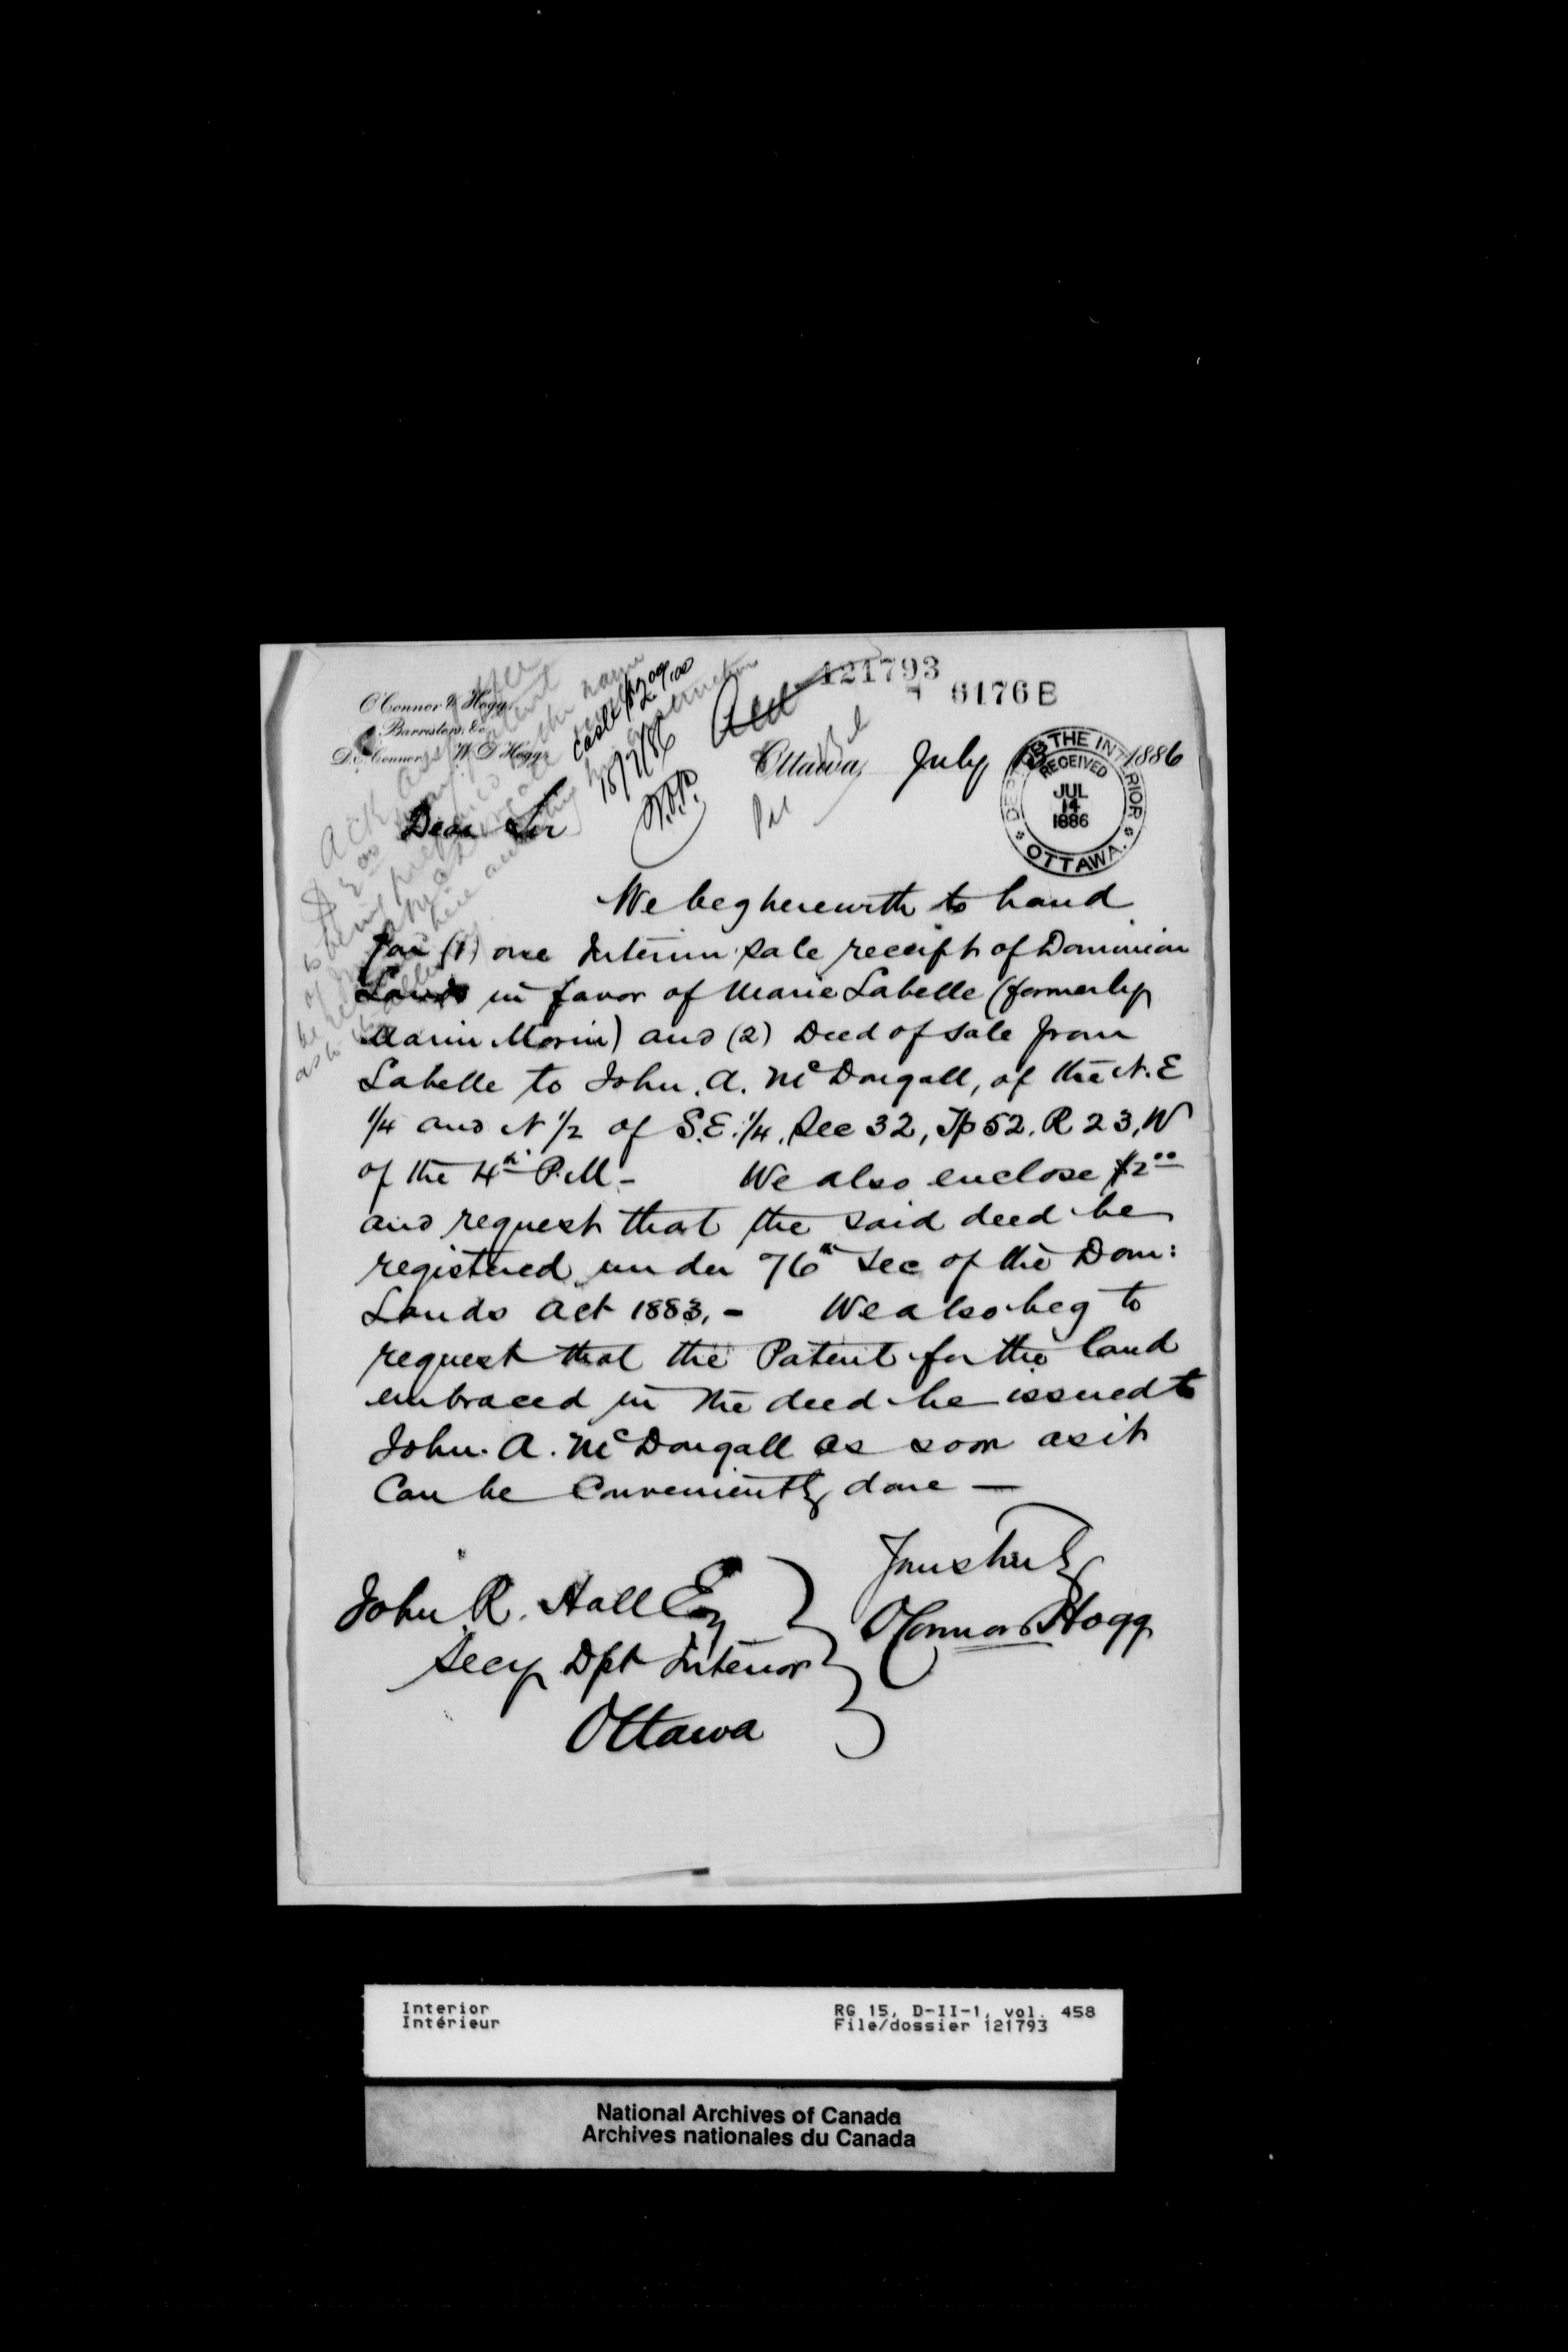 121793
6176 B
O'Connor & Hogg,
Barristers, &c.
D. O'Connor. W. D. Hogg.
Cash $2.00
15/7/86
Ottawa, July 1886
DEPT OF THE INTERIOR
RECEIVED
JUL
14
1886
OTTAWA.
Dear Sir
We beg herewith to hand
you (1) one Interim sale receipt of Dominion
Lands in favor of Marie Labelle (formerly
Marie Morin) and (2) Deed of sale from
Labelle to John. A. McDougall, of the N.E
1/4 and N 1/2 of S.E. 1/4. Sec 32, Tp 52. R 23, W
of the 4th P.M - We also enclose $2.00
and request that the said deed be
registered under 76th Sec of the Dom:
Lands Act 1883. - We also beg to
request that the Patent for the land
embraced in the deed be issued to
John. A. McDougall as soon as it
can be conveniently done —
Yours truly
O'Connor & Hogg
John R. Hall Esq
Secy Dpt Interior
Ottawa
Interior
Intérieur
RG 15, D-II-1, vol. 458
File/dossier 121793
National Archives of Canada
Archives nationales du Canada